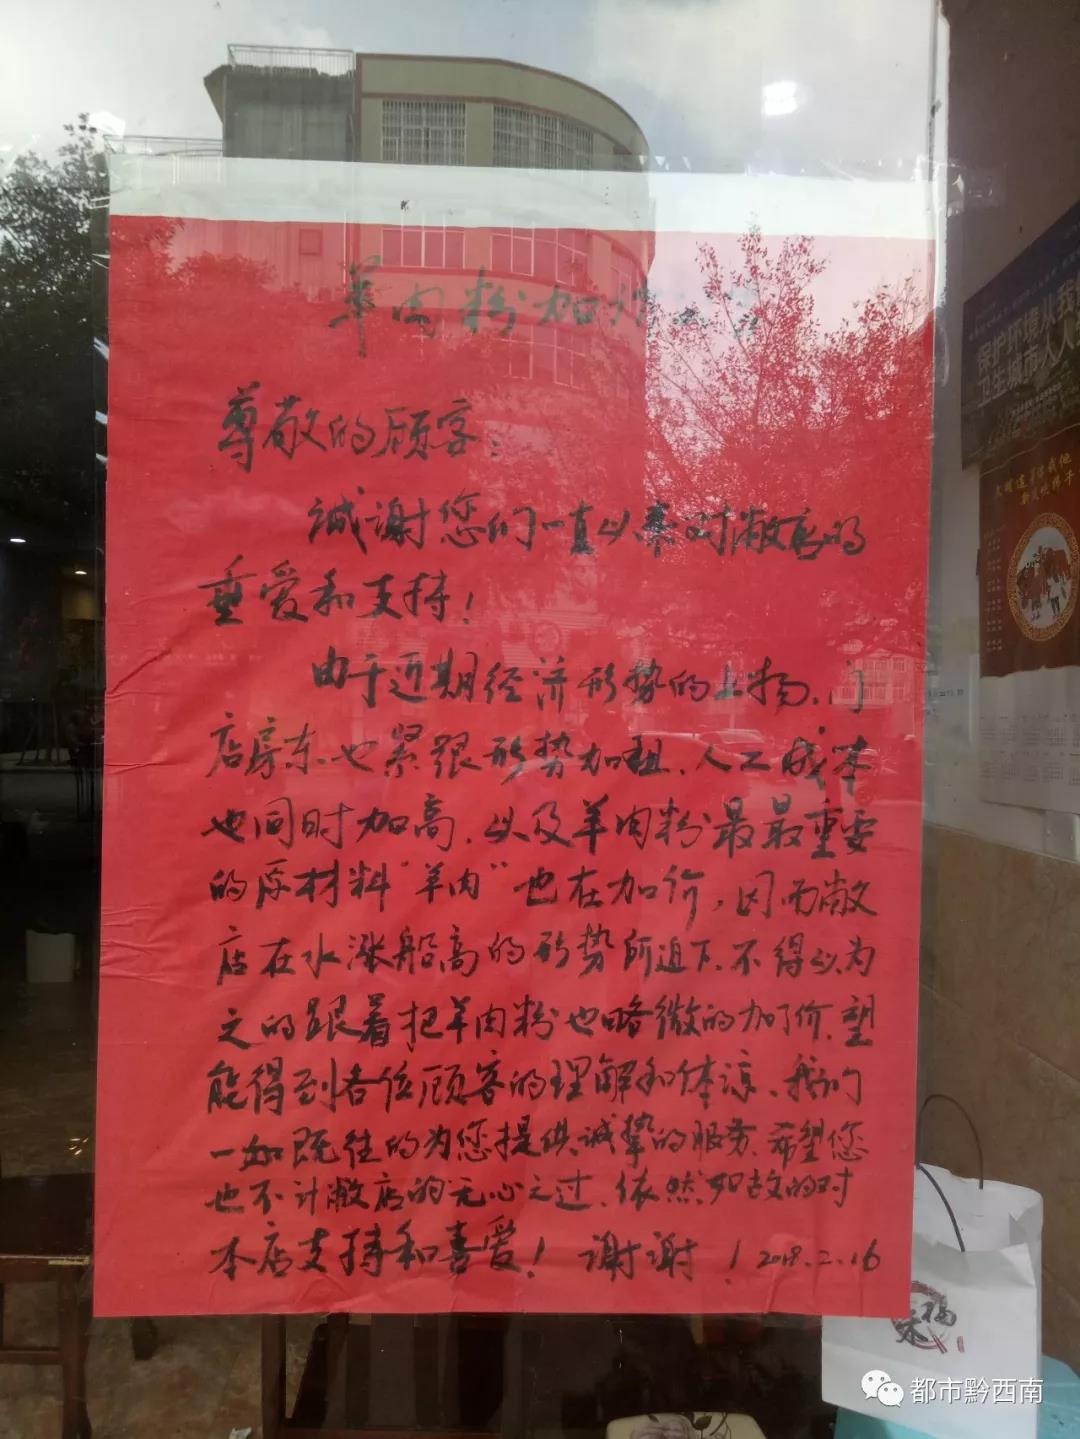 羊肉粉加价
尊敬的顾客:
诚谢您们一直以来对敝店的
垂爱和支持!
由于近期经济形势的上扬、门
店房东也紧跟形势加租、人工成本
也同时加高、以及羊肉粉最最重要
的原材料“羊肉”也在加价,因而敝
店在水涨船高的形势所迫下、不得以为
之的跟着把羊肉粉也略微的加价、望
能得到各位顾客的理解和体谅、我们
一如既往的为您提供诚挚的服务、希望您
也不计敝店的无心之过、依然如故的对
本店支持和喜爱! 谢谢! 2018.2.16
保护环境从我
卫生城市人人
福
味
都市黔西南